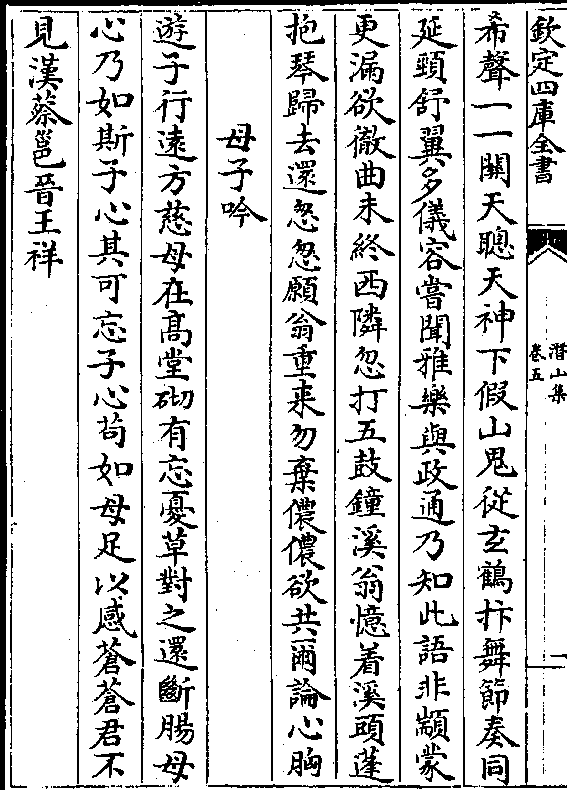 欽定四庫全書
潛山集
卷五
一
希聲一一闗天聰天神下假山鬼從玄鶴抃舞節奏同
延頸舒翼多儀容嘗聞雅樂與政通乃知此語非顓蒙
更漏欲徹曲未終西隣忽打五鼓鐘溪翁憶着溪頭蓬
抱琴歸去還怱怱願翁重来勿棄儂儂欲共爾論心胸
母子吟
遊子行遠方慈母在髙堂砌有忘憂草對之還斷腸母
心乃如斯子心其可忘子心苟如母足以感蒼蒼君不
見漢蔡邕晉王祥